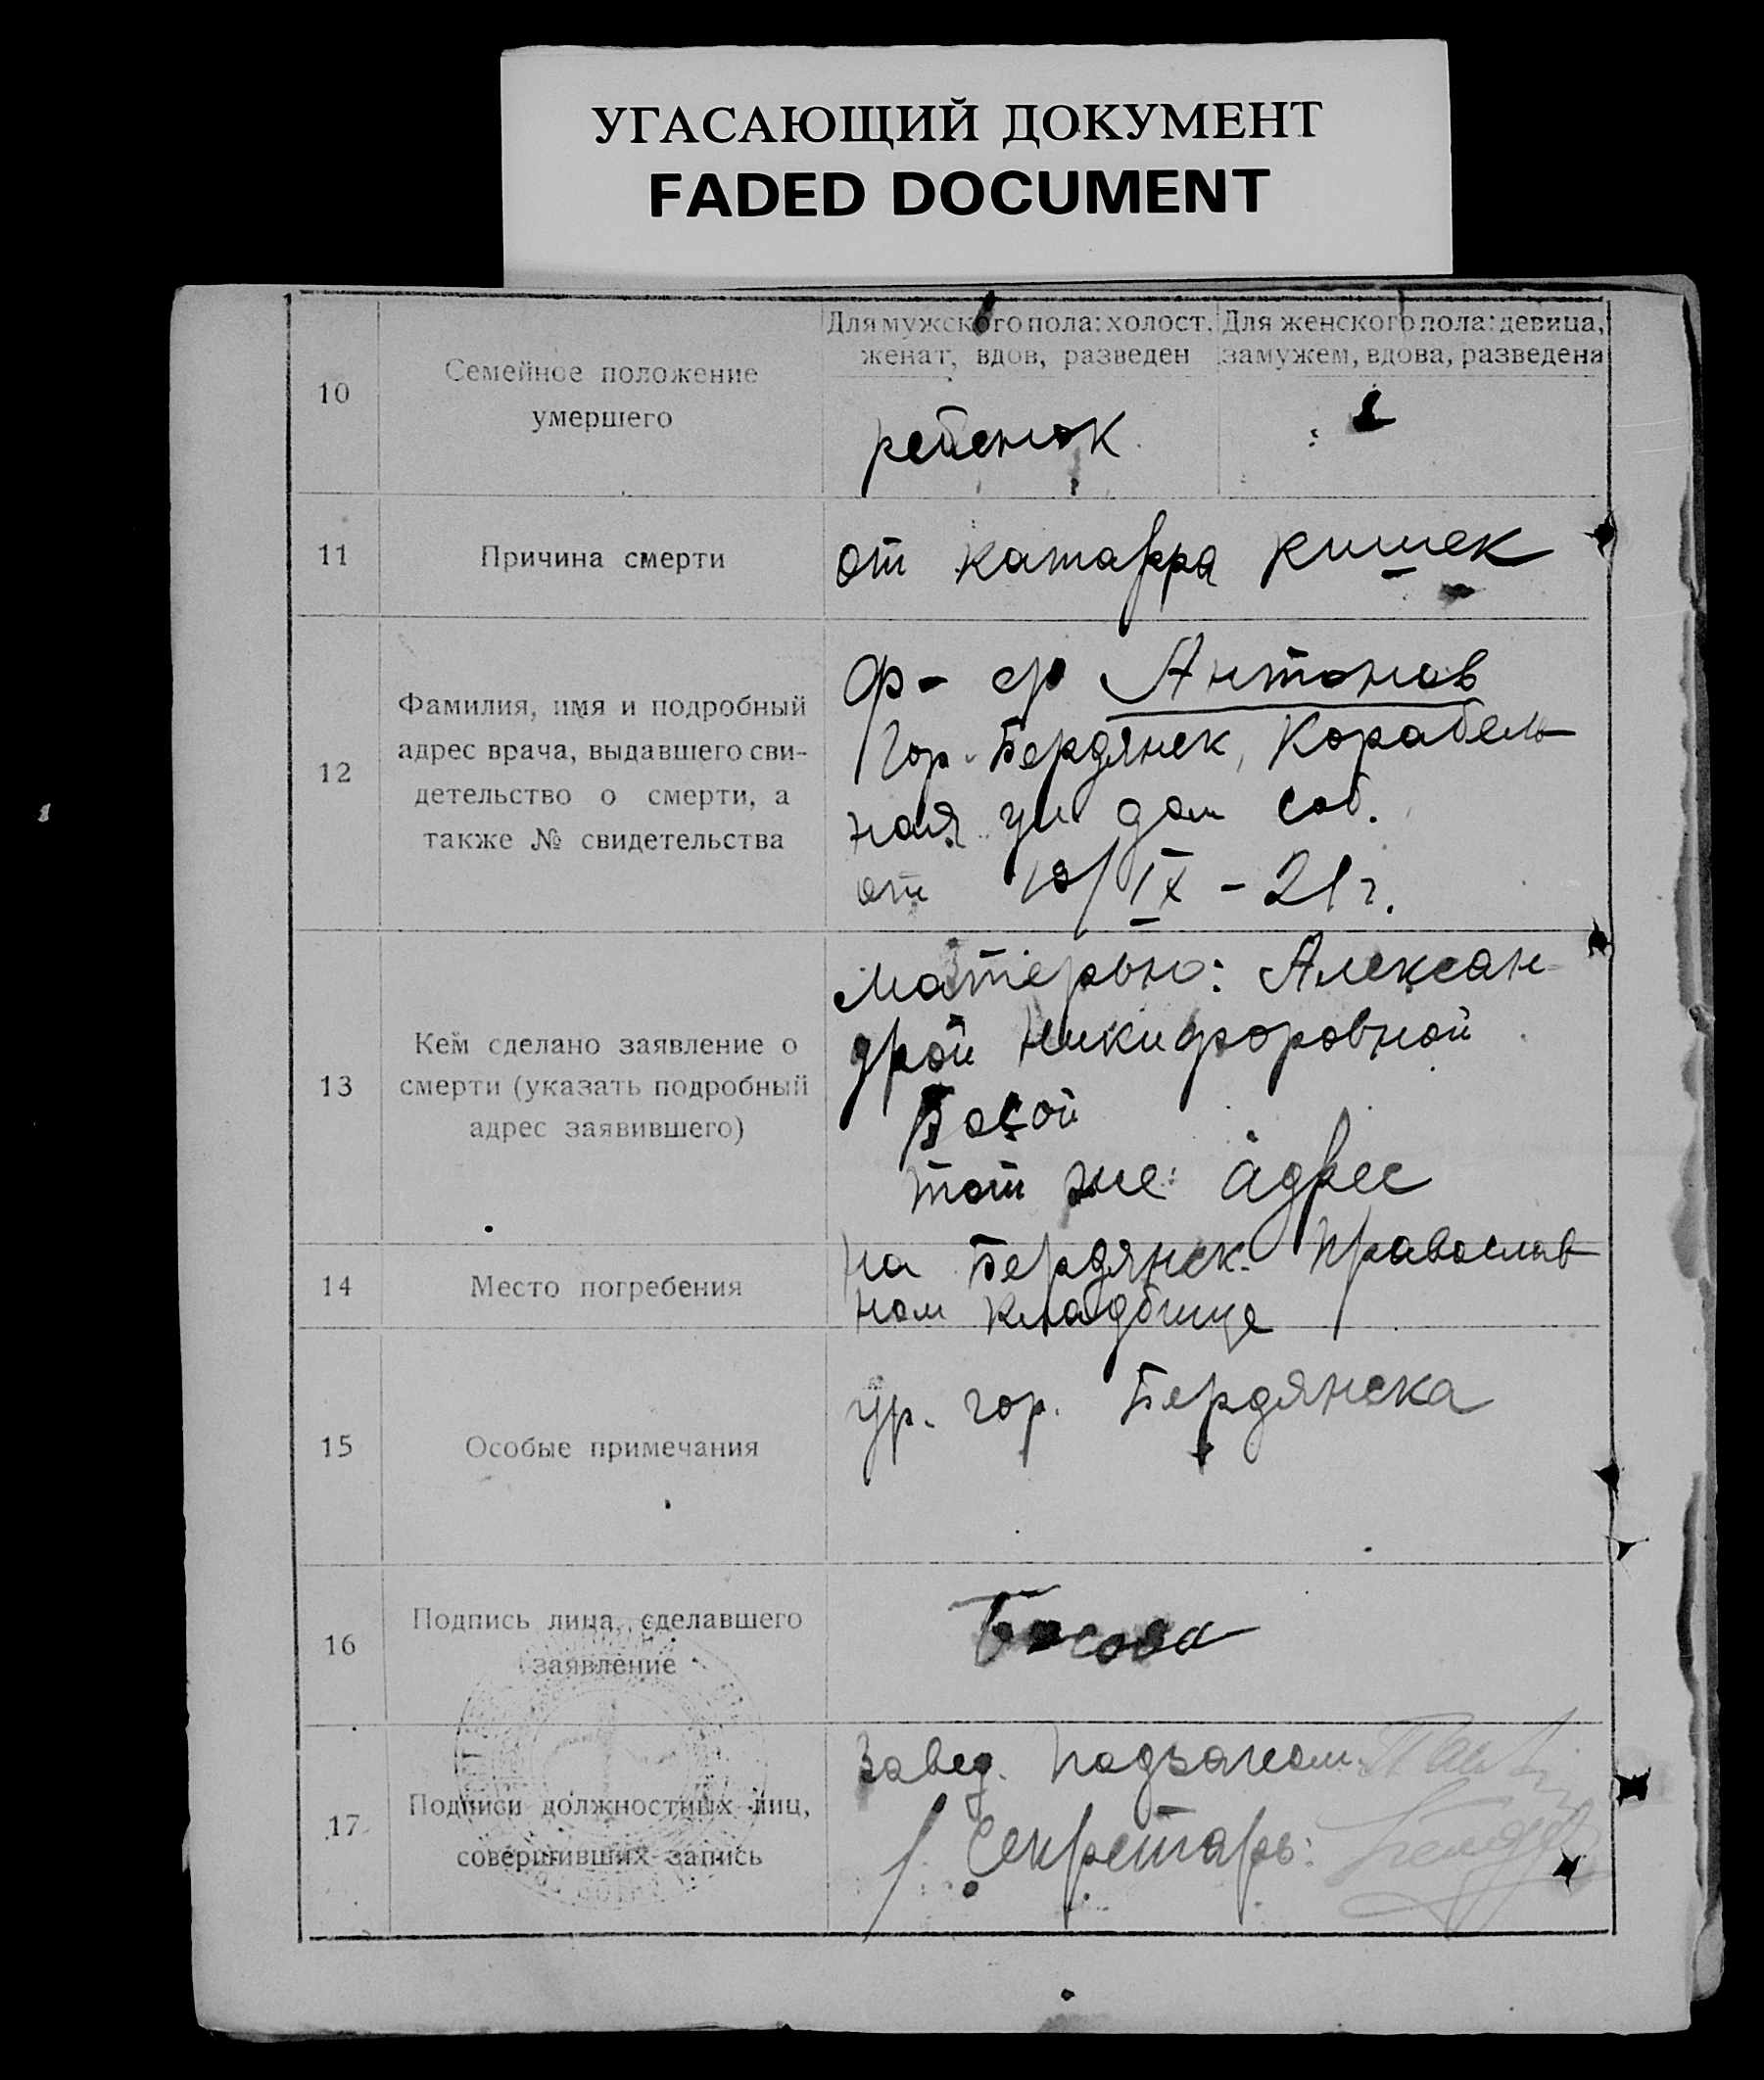 УГАСАЮЩИЙ ДОКУМЕНТ
FADED DOCUMENT
10
Семейное положение
умершего
Для мужского пола: холост,
женат, вдов, разведен
Для женского пола: девица,
замужем, вдова, разведена
ребенок
11
Причина смерти
от катарра кишек
12
Фамилия, имя и подробный
адрес врача, выдавшего сви-
детельство о смерти, а
также № свидетельства
ф-ер Антонов
Гор. Бердянск, Корабель
ная ул дом соб.
от /IX - 21 г.
13
Кем сделано заявление о
смерти (указать подробный
адрес заявившего)
Матерью: Алексан
дрой Никифоровной
Босой
тот же адрес
14
Место погребения
на Бердянск. православ
ном кладбище
15
Особые примечания
ур. гор. Бердянска
16
Подпись лица, сделавшего
заявление
17
Подписи должностных лиц,
совершивших запись
Завед. Подзагсом
Секретарь: